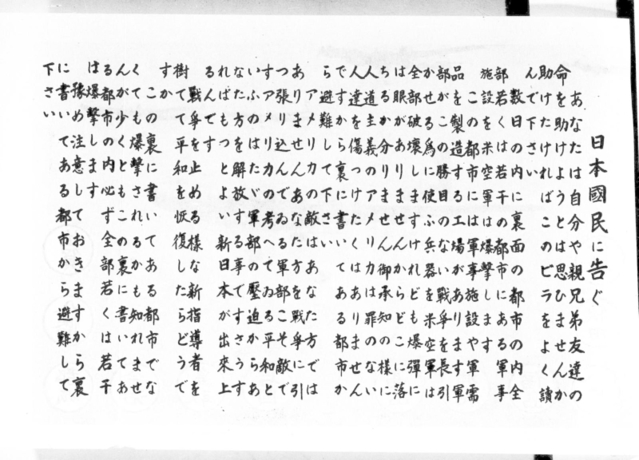 日本國民に告ぐ
あなたは自分や親兄弟友達の
命を助けようとは思ひませんか
助けたければこのビラをよく讀
んで下さい
數日の内に裏面の都市の内全
部若くは若干の都市にある軍事
施設を米空軍は爆撃します
この都市には軍事施設や軍需
品を製造する工場があります軍
部がこの勝目のない戰爭を長引
かせる爲に使ふ兵器を米空軍は
全部破壞しますけれども爆彈に
は眼がありませんからどこに落
ちるか分りません御承知の樣に
人道主義のアメリカは罪のない
人達を傷つけたくはありません
ですから裏に書いてある都市か
ら避難して下さい
アメリカの敵はあなた方では
ありませんあなた方を戰爭に引
つ張り込んでゐる軍部こそ敵で
すアメリカの考へてゐる平和と
いふのはたゞ軍部の壓迫からあ
なた方を解放する事ですさうす
ればもつとよい新日本が出來上
るんです
戰爭を止める樣な新指導者を
樹てて平和を恢復したらどうで
すか
この裏に書いてある都市でな
くても爆撃されるかも知れませ
んが少くともこの裏に書いてあ
る都市の内必ず全部若くは若干
は爆撃します
豫め注意しておきますから裏
に書いてある都市から避難して
下さい